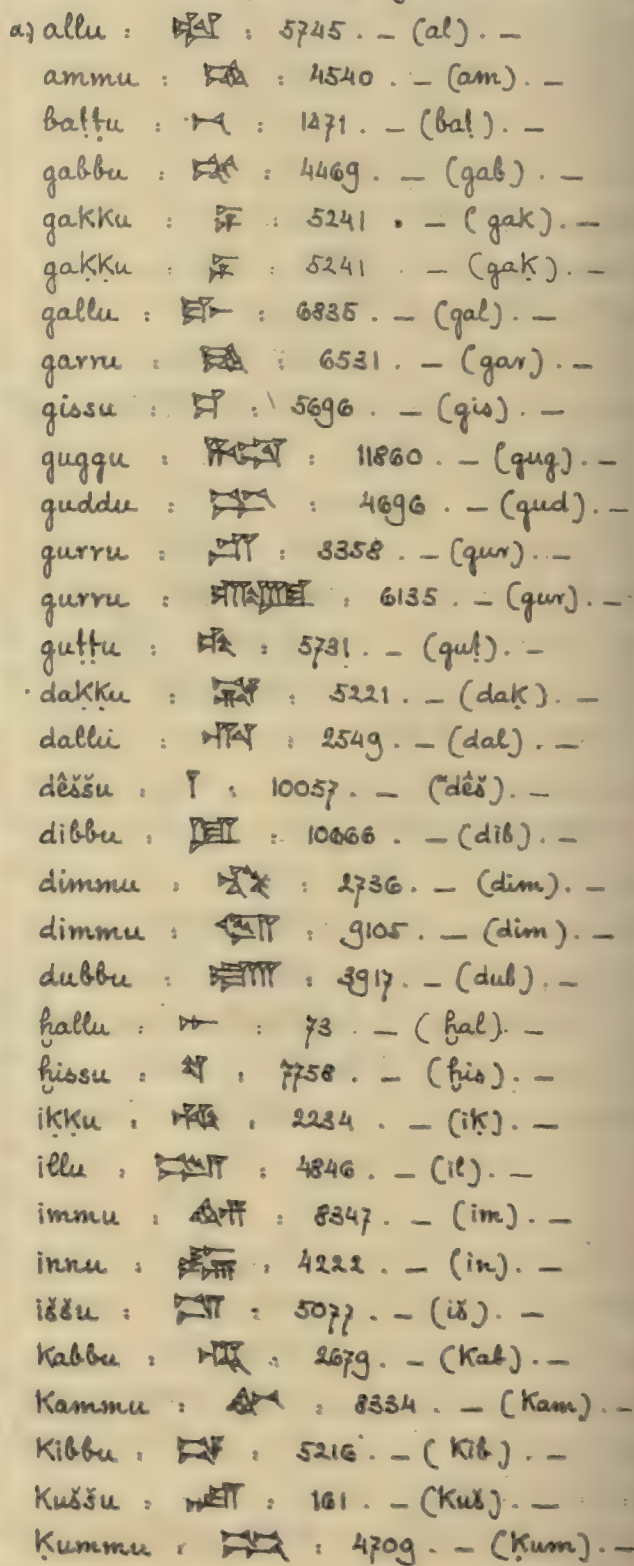 a) allu : 𒀠 : 5745 . – (al). –
ammu : 𒄠 : 4540 . – (am). –
baṭṭu : 𒁁 : 1471 . – (baṭ). –
gabbu : 𒃮 : 4469 . – (gab) . –
gakku : 𒆕 : 5241 . – (gak). –
gaḳḳu : 𒆕 : 5241 . – (gaḳ). –
gallu : 𒃲 : 6835 . – (gal). –
garru : : 6531 . – (gar). –
gissu : 𒄑 : 5696 . – (gis). –
guggu : : 11860 . – (gug). –
guddu : : 4696 . – (gud). –
gurru : 𒄥 : 3358 . – (gur). –
gurru : : 6135 . – (gur). –
guṭṭu : : 5731 . – (guṭ). –
daḳḳu : : 5221 . – (daḳ). –
dallu : 𒊑 : 2549 . – (dal). –
dêššu : 𒁹 : 10057 . – (dêš). –
dibbu : 𒁳 : 10666 . – (dib). –
dimmu : 𒁴 : 2736 . – (dim). –
dimmu : : 9105 . – (dim). –
dubbu : 𒁾 : 3917 . – (dub). –
ḫallu : 𒄬 : 73 . – (ḫal). –
ḫissu : : 7758 . – (ḫis). –
iḳḳu : 𒅅 : 2234 . – (iḳ). –
illu : : 4846 . – (il). –
immu : 𒅎 : 8347 . – (im). –
innu : 𒅔 : 4222 . – (in). –
iššu : 𒅖 : 5077 . – (iš). –
kabbu : 𒆏 : 2679 . – (kab). –
kammu : : 8334 . – (kam). –
kibbu : : 5216 . – (kib). –
kuššu : : 161 . – (kuš). –
ḳummu : 𒄣 : 4709 . – (ḳum). –